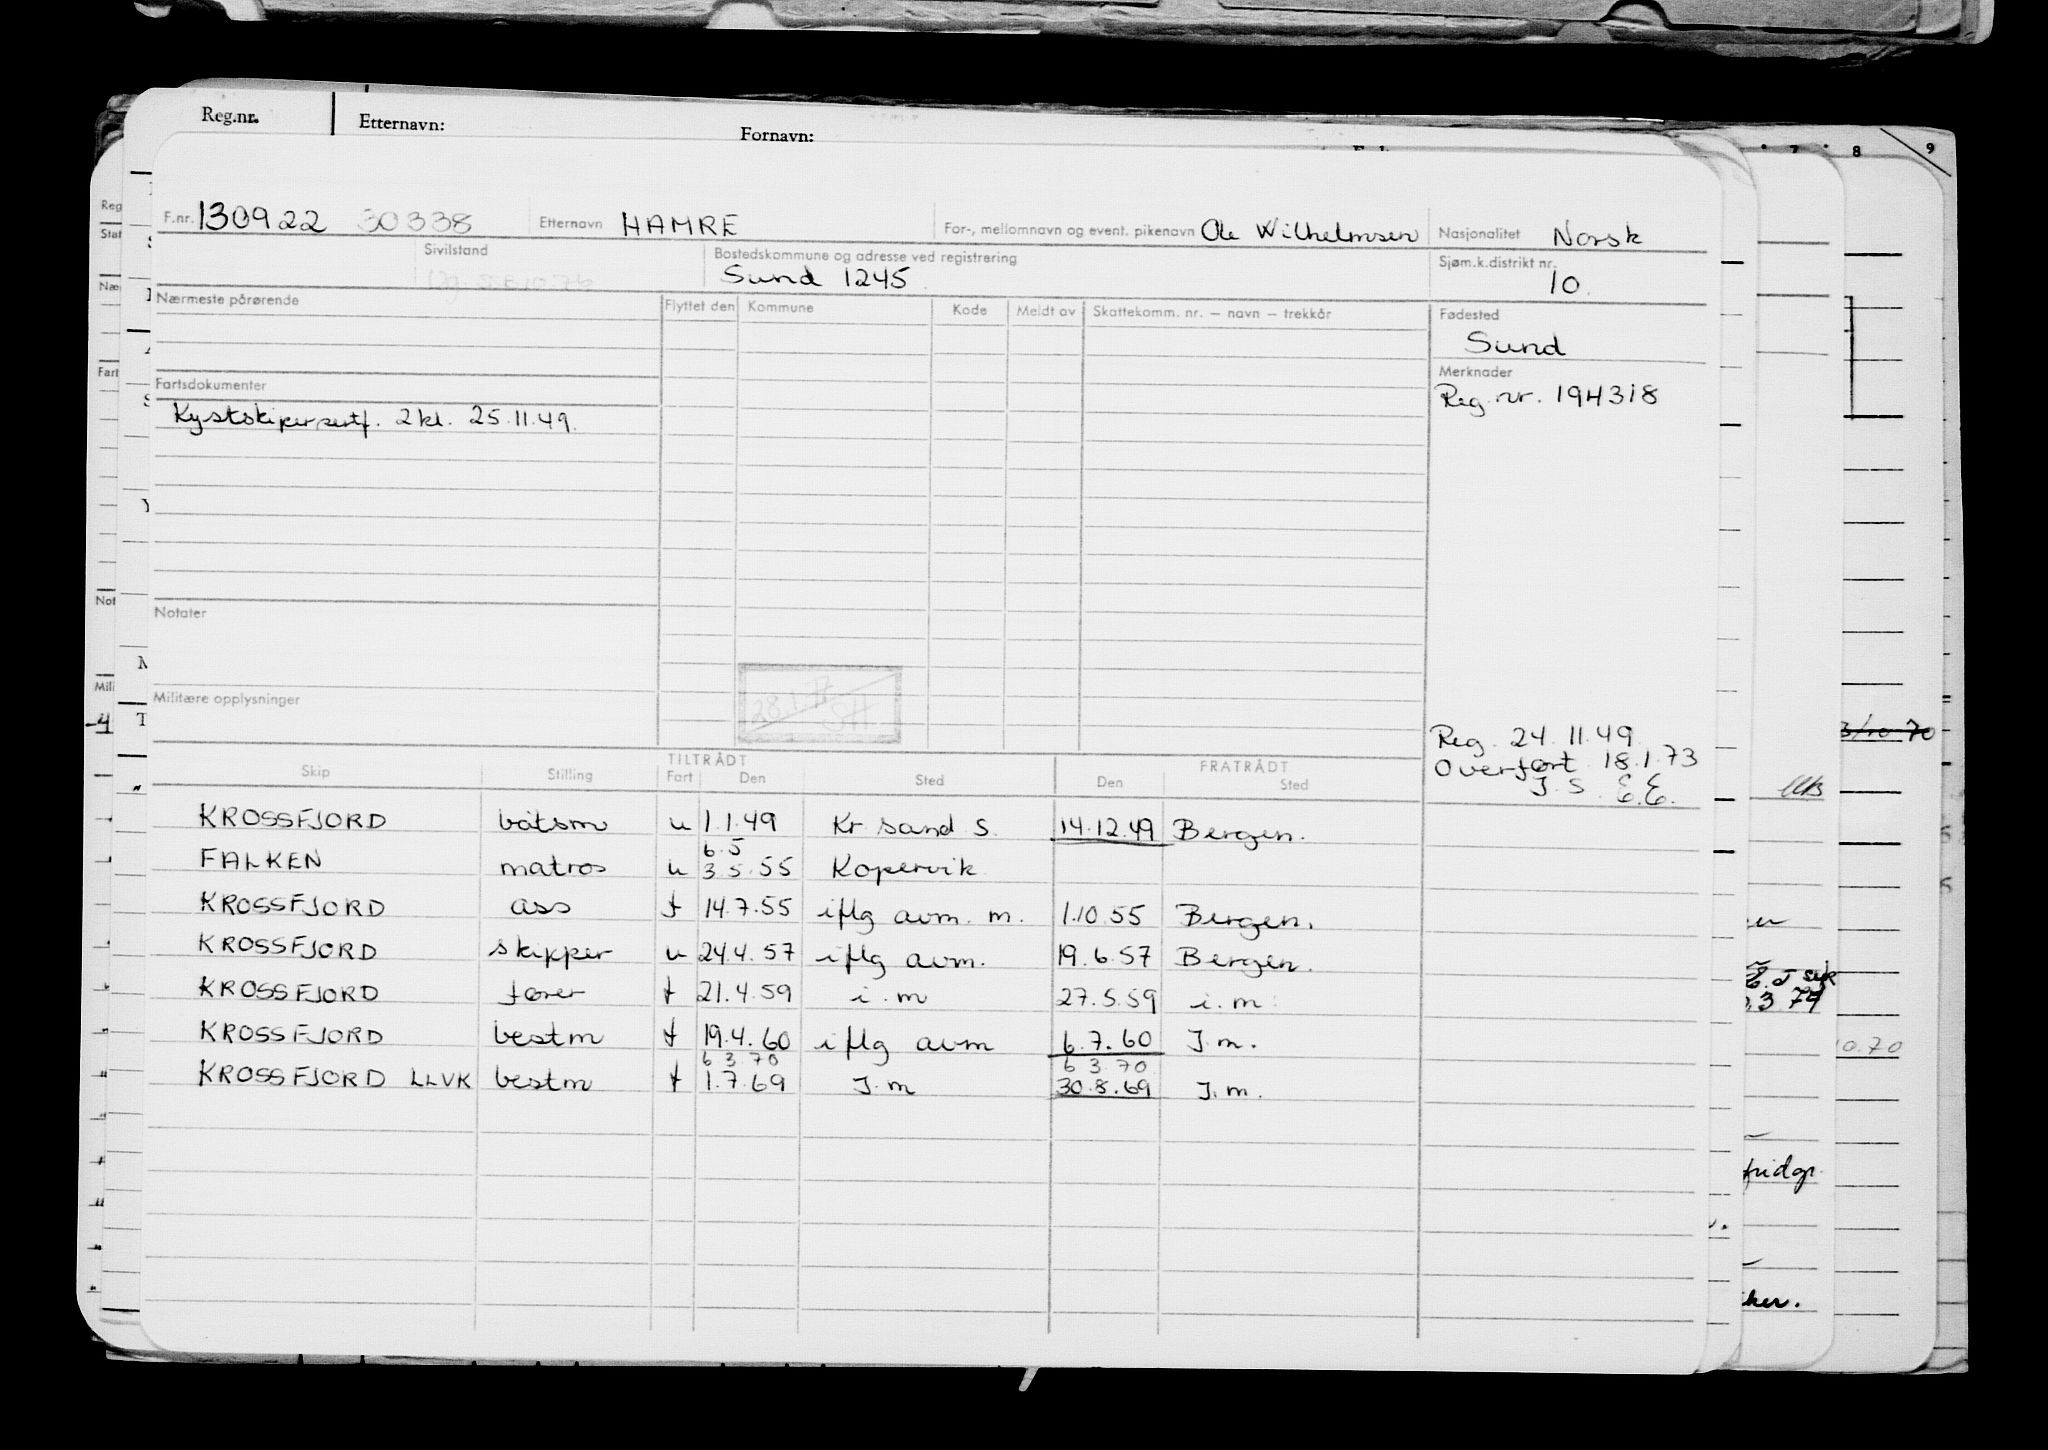 Reg.nr. Etternavn: Fornavn:
7 8 9
F.nr. 130922 30338 Etternavn HAMRE For-, mellomnavn og event. pikenavn Ole Wilhelmsen Nasjonalitet Norsk
Sivilstand Bostedskommune og adresse ved registrering Sjøm.k.distrikt nr.
Sund 1245 10
Nærmeste pårørende Flyttet den Kommune Kode Meldt av Skattekomm. nr. – navn – trekkår Fødested
Sund
Fartsdokumenter Merknader
Kystskippersertf. 2kl. 25.11.49. Reg. nr. 194318
Notater
28.1.77
SH
Militære opplysninger
Reg. 24.11.49.
Overført 18.1.73
J.S. E.E.
TILTRÅDT FRATRÅDT
Skip Stilling Fart Den Sted Den Sted
KROSSFJORD båtsm u 1.1.49 Kr sand S. 14.12.49 Bergen.
6.5
FALKEN matros u 3.5.55 Kopervik
KROSSFJORD ass f 14.7.55 iflg avm. m. 1.10.55 Bergen.
KROSSFJORD skipper u 24.4.57 iflg avm. 19.6.57 Bergen.
KROSSFJORD fører f 21.4.59 i.m 27.5.59 i.m.
KROSSFJORD bestm f 19.4.60 iflg avm 6.7.60 I.m.
6 3 70 6 3.70
KROSSFJORD LLVK bestm f 1.7.69 I.m 30.8.69 I.m.
Reg
Stat
Næ
Fart
Not
Mili
3/10 70
.3 74
0.70
fridgr.
ker.